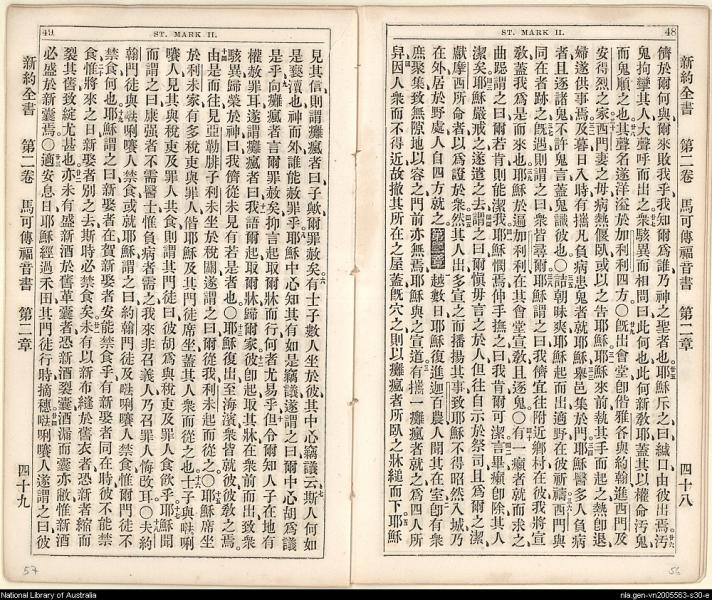 48
ST. MARK II.
新約全書 第二卷 馬可傳福音書 第二章 四十八
儕於爾何與爾來敗我乎我知爾爲誰乃神之聖者也耶穌斥之曰緘口由彼出焉汚
鬼拘攣其人大聲呼而出之衆駭異而相問曰此何也此何新敎耶蓋其以權命汚鬼
而鬼順之也其聲名遂洋溢於加利利四方○旣出會堂卽偕雅各與約翰進西門及
安得烈之家西門妻之母病熱偃臥或以之告耶穌耶穌來前執其手而起之熱卽退
婦遂供事焉及暮日入時有攜凡負病患鬼者就耶穌舉邑集於門耶穌醫多人負病
者且逐諸鬼不許鬼言蓋鬼識彼也○詰朝昧爽耶穌起而出適野在彼祈禱西門與
同在者跡之旣遇則謂之曰衆皆尋爾耶穌謂之曰我儕宜往附近鄉村在彼我將宣
敎蓋我爲是而來也耶穌於遍加利利在其會堂宣敎且逐鬼○有一癩者就而求之
曲跽謂之曰爾若肯則能潔我耶穌憫焉伸手撫之曰我肯爾可潔言畢癩卽除其人
潔矣耶穌嚴戒之遂遣之去謂之曰爾愼毋言之於人但往自示於祭司且爲爾之潔
獻摩西所命者以爲證於衆然其人出多宣之而播揚其事致耶穌不得昭然入城乃
在外居於野處人自四方就之第二章越數日耶穌復進迦百農人聞其在室卽有衆
庶聚集致無隙地以容之門前亦無焉耶穌與之宣道有攜一癱瘋者就之爲四人所
舁因人衆而不得近故撤其所在之屋蓋旣穴之則以癱瘋者所臥之牀縋而下耶穌
56
49
ST. MARK II.
見其信則謂癱瘋者曰子歟爾罪赦矣有士子數人坐於彼其中心竊議云斯人何如
是褻瀆也神而外誰能赦罪乎耶穌中心知其有如是竊議遂謂之曰爾中心胡爲議
是乎向癱瘋者言爾罪赦矣抑言起取爾牀而行何者尤易乎但令爾知人子在地有
權赦罪耳遂謂癱瘋者曰我語爾起取爾牀歸爾家彼卽起取其牀在衆前而出致衆
駭異歸榮於神曰我儕從未見有若是者也○耶穌復出至海濱衆皆就彼彼敎之焉
由是而往見亞勒腓子利未坐於稅關遂謂之曰爾從我利未起而從之○耶穌席坐
於利未家有多稅吏與罪人偕耶穌及其門徒席坐蓋其人衆而從之也士子與唎
嚷人見其與稅吏及罪人共食則謂其門徒曰彼胡爲與稅吏及罪人食飲乎耶穌聞
而謂之曰康强者不需醫士惟負病者需之我來非召義人乃召罪人悔改耳○夫約
翰門徒與唎嚷人禁食或就耶穌謂之曰約翰門徒及唎嚷人禁食惟爾門徒不
禁食何也耶穌謂之曰新娶者在賀新娶者安能禁食乎有新娶者同在時彼不能禁
食惟將來之日新娶者別之去斯時必禁食矣未有以新布縫於舊衣者恐新者縮而
裂其舊致綻尤甚也亦未有盛新酒於舊革囊者恐新酒裂囊酒漏而囊亦敝惟新酒
必盛於新囊焉○適安息日耶穌經過禾田其門徒行時摘穗唎嚷人遂謂之曰彼
新約全書 第二卷 馬可傳福音書 第二章 四十九
57
National Library of Australia
nla.gen-vn2005563-s30-e